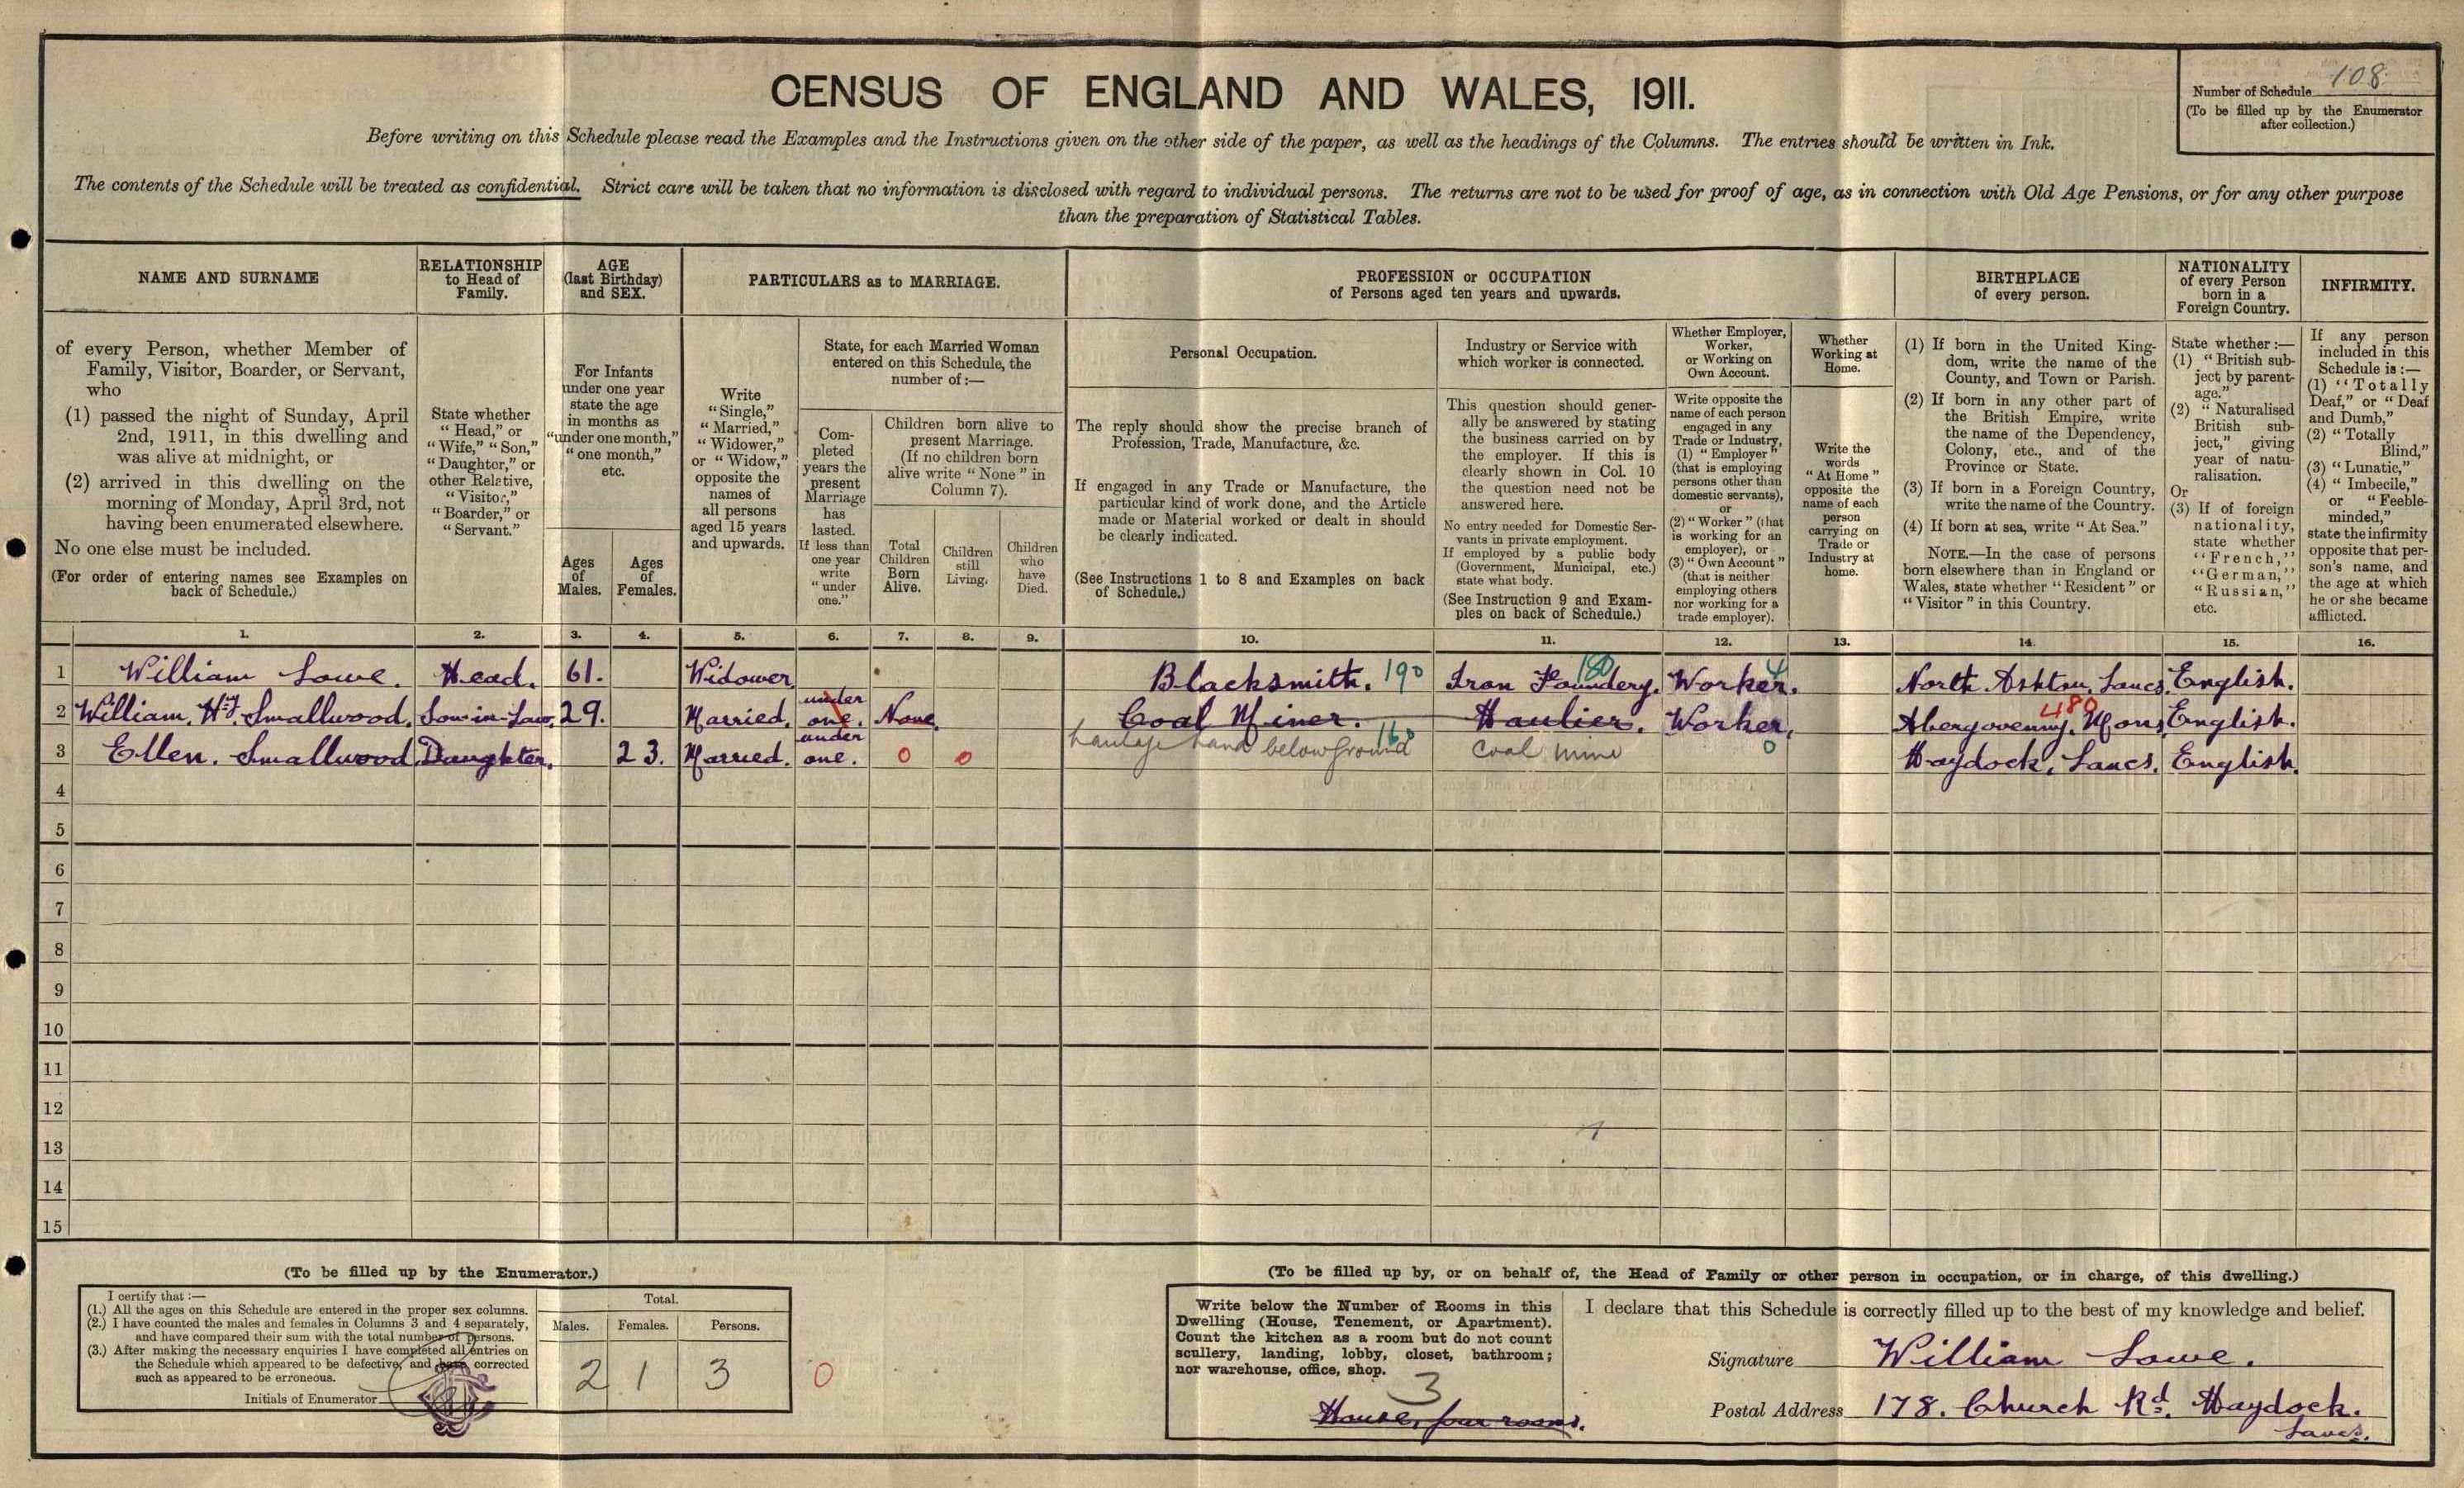 CENSUS OF ENGLAND AND WALES, 1911.
Number of Schedule 108
(To be filled up by the Enumerator
after collection.)
Before writing on this Schedule please read the Examples and the Instructions given on the other side of the paper, as well as the headings of the Columns. The entries should be written in Ink.
The contents of the Schedule will be treated as confidential. Strict care will be taken that no information is disclosed with regard to individual persons. The returns are not to be used for proof of age, as in connection with Old Age Pensions, or for any other purpose
than the preparation of Statistical Tables.
NAME AND SURNAME
RELATIONSHIP
to Head of
Family.
AGE
(last Birthday)
and SEX.
PARTICULARS as to MARRIAGE.
PROFESSION or OCCUPATION
of Persons aged ten years and upwards.
BIRTHPLACE
of every person.
NATIONALITY
of every Person
born in a
Foreign Country.
INFIRMITY.
of every Person, whether Member of
Family, Visitor, Boarder, or Servant,
who
(1) passed the night of Sunday, April
2nd, 1911, in this dwelling and
was alive at midnight, or
(2) arrived in this dwelling on the
morning of Monday, April 3rd, not
having been enumerated elsewhere.
No one else must be included.
(For order of entering names see Examples on
back of Schedule.)
State whether
"Head," or
"Wife," "Son,"
"Daughter," or
other Relative,
"Visitor,"
"Boarder," or
"Servant."
For Infants
under one year
state the age
in months as
"under one month,"
"one month,"
etc.
Ages
of
Males.
Ages
of
Females.
Write
"Single,"
"Married,"
"Widower,"
or "Widow,"
opposite the
names of
all persons
aged 15 years
and upwards.
State, for each Married Woman
entered on this Schedule, the
number of :—
Com-
pleted
years the
present
Marriage
has
lasted.
If less than
one year
write
"under
one."
Children born alive to
present Marriage.
(If no children born
alive write "None" in
Column 7).
Total
Children
Born
Alive.
Children
still
Living.
Children
who
have
Died.
Personal Occupation.
The reply should show the precise branch of
Profession, Trade, Manufacture, &c.
If engaged in any Trade or Manufacture, the
particular kind of work done, and the Article
made or Material worked or dealt in should
be clearly indicated.
(See Instructions 1 to 8 and Examples on back
of Schedule.)
Industry or Service with
which worker is connected.
This question should gener-
ally be answered by stating
the business carried on by
the employer. If this is
clearly shown in Col. 10
the question need not be
answered here.
No entry needed for Domestic Ser-
vants in private employment.
If employed by a public body
(Government, Municipal, etc.)
state what body.
(See Instruction 9 and Exam-
ples on back of Schedule.)
Whether Employer,
Worker,
or Working on
Own Account.
Write opposite the
name of each person
engaged in any
Trade or Industry,
(1) "Employer"
(that is employing
persons other than
domestic servants),
or
(2) "Worker" (that
is working for an
employer), or
(3) "Own Account"
(that is neither
employing others
nor working for a
trade employer).
Whether
Working at
Home.
Write the
words
"At Home"
opposite the
name of each
person
carrying on
Trade or
Industry at
home.
(1) If born in the United King-
dom, write the name of the
County, and Town or Parish.
(2) If born in any other part of
the British Empire, write
the name of the Dependency,
Colony, etc., and of the
Province or State.
(3) If born in a Foreign Country,
write the name of the Country.
(4) If born at sea, write "At Sea."
NOTE.—In the case of persons
born elsewhere than in England or
Wales, state whether "Resident" or
"Visitor" in this Country.
State whether :—
(1) "British sub-
ject by parent-
age."
(2) "Naturalised
British sub-
ject," giving
year of natu-
ralisation.
Or
(3) If of foreign
nationality,
state whether
"French,"
"German,"
"Russian,"
etc.
If any person
included in this
Schedule is :—
(1) "Totally
Deaf," or "Deaf
and Dumb,"
(2) "Totally
Blind,"
(3) "Lunatic,"
(4) "Imbecile,"
or "Feeble-
minded,"
state the infirmity
opposite that per-
son's name, and
the age at which
he or she became
afflicted.
1. 2. 3. 4. 5. 6. 7. 8. 9. 10. 11. 12. 13. 14. 15. 16.
1 William Lowe. Head. 61. Widower. Blacksmith. 190 Iron Foundery. 180 Worker. 4 North Ashton, Lancs. English.
2 William. Hy. Smallwood. Son-in-Law. 29. Married. under one. None. Coal Miner. Haulier. Worker. Abergovenny, Mons. 480 English.
haulage hand below ground 160 coal mine 0
3 Ellen. Smallwood Daughter. 23. Married. under one. 0 0 Haydock, Lancs. English.
4
5
6
7
8
9
10
11
12
13
14
15
(To be filled up by the Enumerator.)
I certify that :—
(1.) All the ages on this Schedule are entered in the proper sex columns.
(2.) I have counted the males and females in Columns 3 and 4 separately,
and have compared their sum with the total number of persons.
(3.) After making the necessary enquiries I have completed all entries on
the Schedule which appeared to be defective, and have corrected
such as appeared to be erroneous.
Initials of Enumerator
Total.
Males. Females. Persons.
2 1 3 0
(To be filled up by, or on behalf of, the Head of Family or other person in occupation, or in charge, of this dwelling.)
Write below the Number of Rooms in this
Dwelling (House, Tenement, or Apartment).
Count the kitchen as a room but do not count
scullery, landing, lobby, closet, bathroom;
nor warehouse, office, shop.
3
House, four rooms.
I declare that this Schedule is correctly filled up to the best of my knowledge and belief.
Signature William Lowe.
Postal Address 178. Church Rd. Haydock.
Lancs.